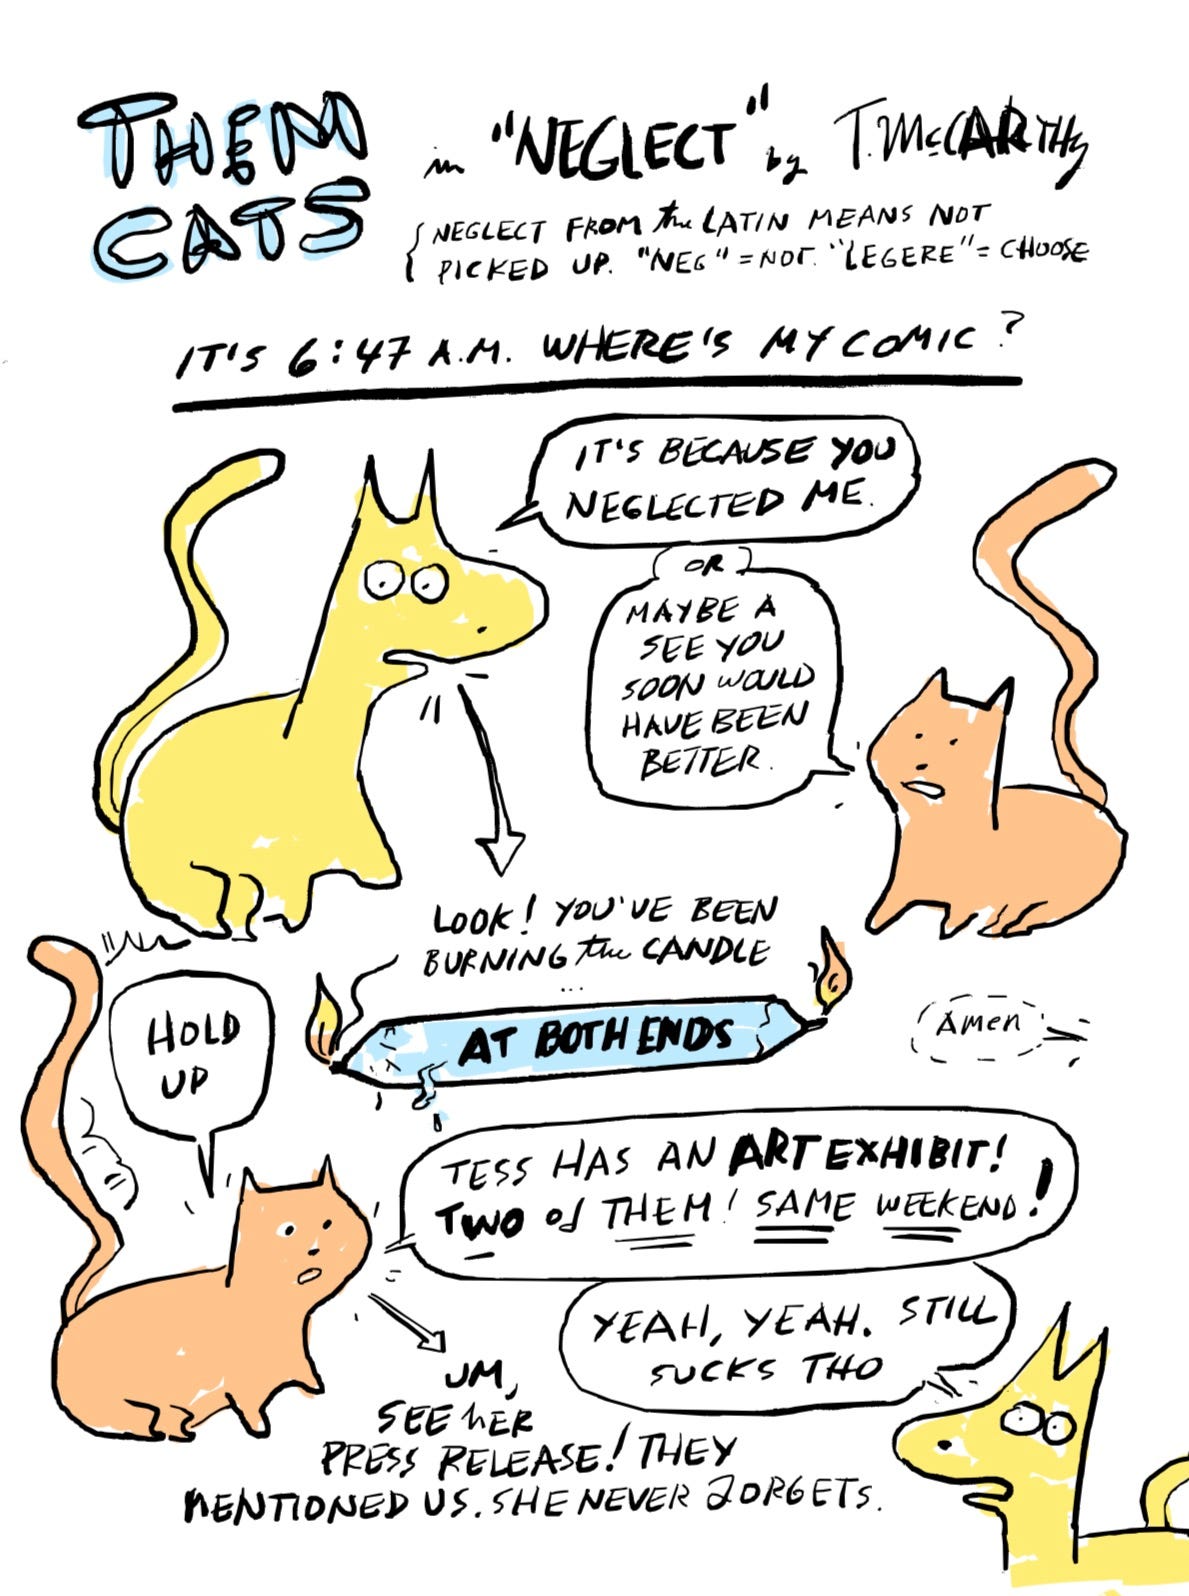 THEM
CATS
in "NEGLECT" by T. McCARTHY
NEGLECT FROM the LATIN MEANS NOT
PICKED UP. "NEG" = NOT. "LEGERE" = CHOOSE
IT'S 6:47 A.M. WHERE'S MY COMIC?
IT'S BECAUSE YOU
NEGLECTED ME.
OR
MAYBE A
SEE YOU
SOON WOULD
HAVE BEEN
BETTER.
LOOK! YOU'VE BEEN
BURNING the CANDLE
...
AT BOTH ENDS
Amen
HOLD
UP
TESS HAS AN ART EXHIBIT!
TWO of THEM! SAME WEEKEND!
YEAH, YEAH. STILL
SUCKS THO
UM,
SEE hER
PRESS RELEASE! THEY
MENTIONED US. SHE NEVER FORGETS.